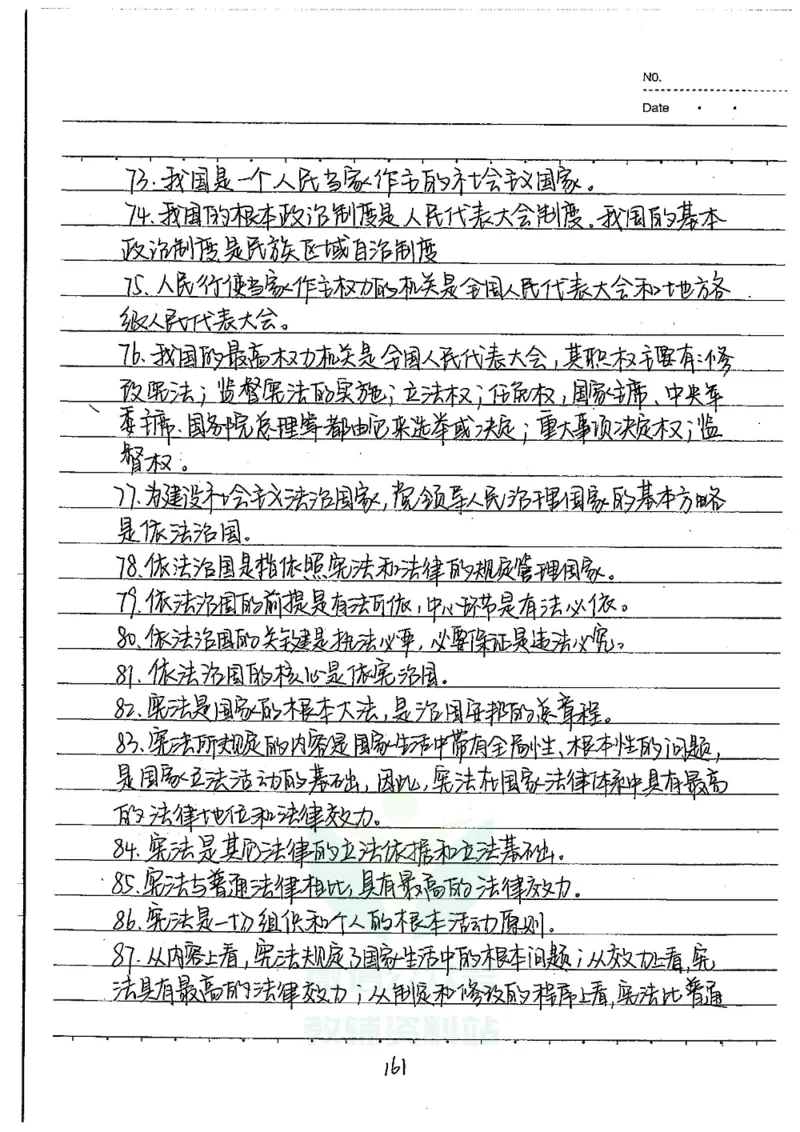 NO.
Date
73.我国是一个人民当家作主的社会主义国家。
74.我国的根本政治制度是人民代表大会制度。我国的基本
政治制度是民族区域自治制度
75.人民行使当家作主权力的机关是全国人民代表大会和地方各
级人民代表大会。
76.我国的最高权力机关是全国人民代表大会,其职权主要有:修
改宪法;监督宪法的实施;立法权;任免权,国家主席、中央军
委主席、国务院总理等都由它来选举或决定;重大事项决定权;监
督权。
77.为建设社会主义法治国家,党领导人民治理国家的基本方略
是依法治国。
78.依法治国是指依照宪法和法律的规定管理国家。
79.依法治国的前提是有法可依,中心环节是有法必依。
80.依法治国的关键是执法必严,必要保证是违法必究。
81.依法治国的核心是依宪治国。
82.宪法是国家的根本大法,是治国安邦的总章程。
83.宪法所规定的内容是国家生活中带有全局性、根本性的问题,
是国家立法活动的基础,因此,宪法在国家法律体系中具有最高
的法律地位和法律效力。
84.宪法是其他法律的立法依据和立法基础。
85.宪法与普通法律相比,具有最高的法律效力。
86.宪法是一切组织和个人的根本活动原则。
87.从内容上看,宪法规定了国家生活中的根本问题;从效力上看,宪
法具有最高的法律效力;从制定和修改的程序上看,宪法比普通
教辅资料站
161